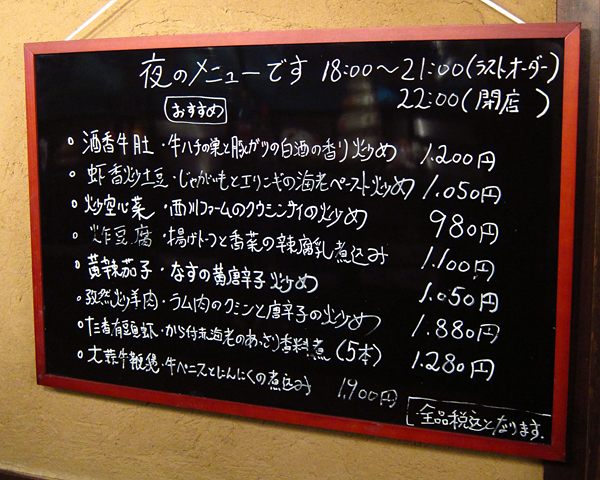 夜のメニューです 18:00〜21:00(ラストオーダー)
22:00(閉店)
おすすめ
酒香牛肚・牛ハチの巣と豚ガツの白酒の香り炒め 1.200円
虾香炒土豆・じゃがいもとエリンギの海老ペースト炒め 1.050円
炒空心菜・西川ファームのクウシンサイの炒め 980円
炸豆腐・揚げトーフと香菜の辣腐乳煮込み 1.100円
黄辣茄子・なすの黄唐辛子炒め 1.050円
孜然炒羊肉・ラム肉のクミンと唐辛子の炒め 1.880円
有頭虾・から付赤海老のあっさり香料煮(5本) 1.280円
大蒜牛鞭煲・牛ペニスとにんにくの煮込み 1.900円
全品税込となります。